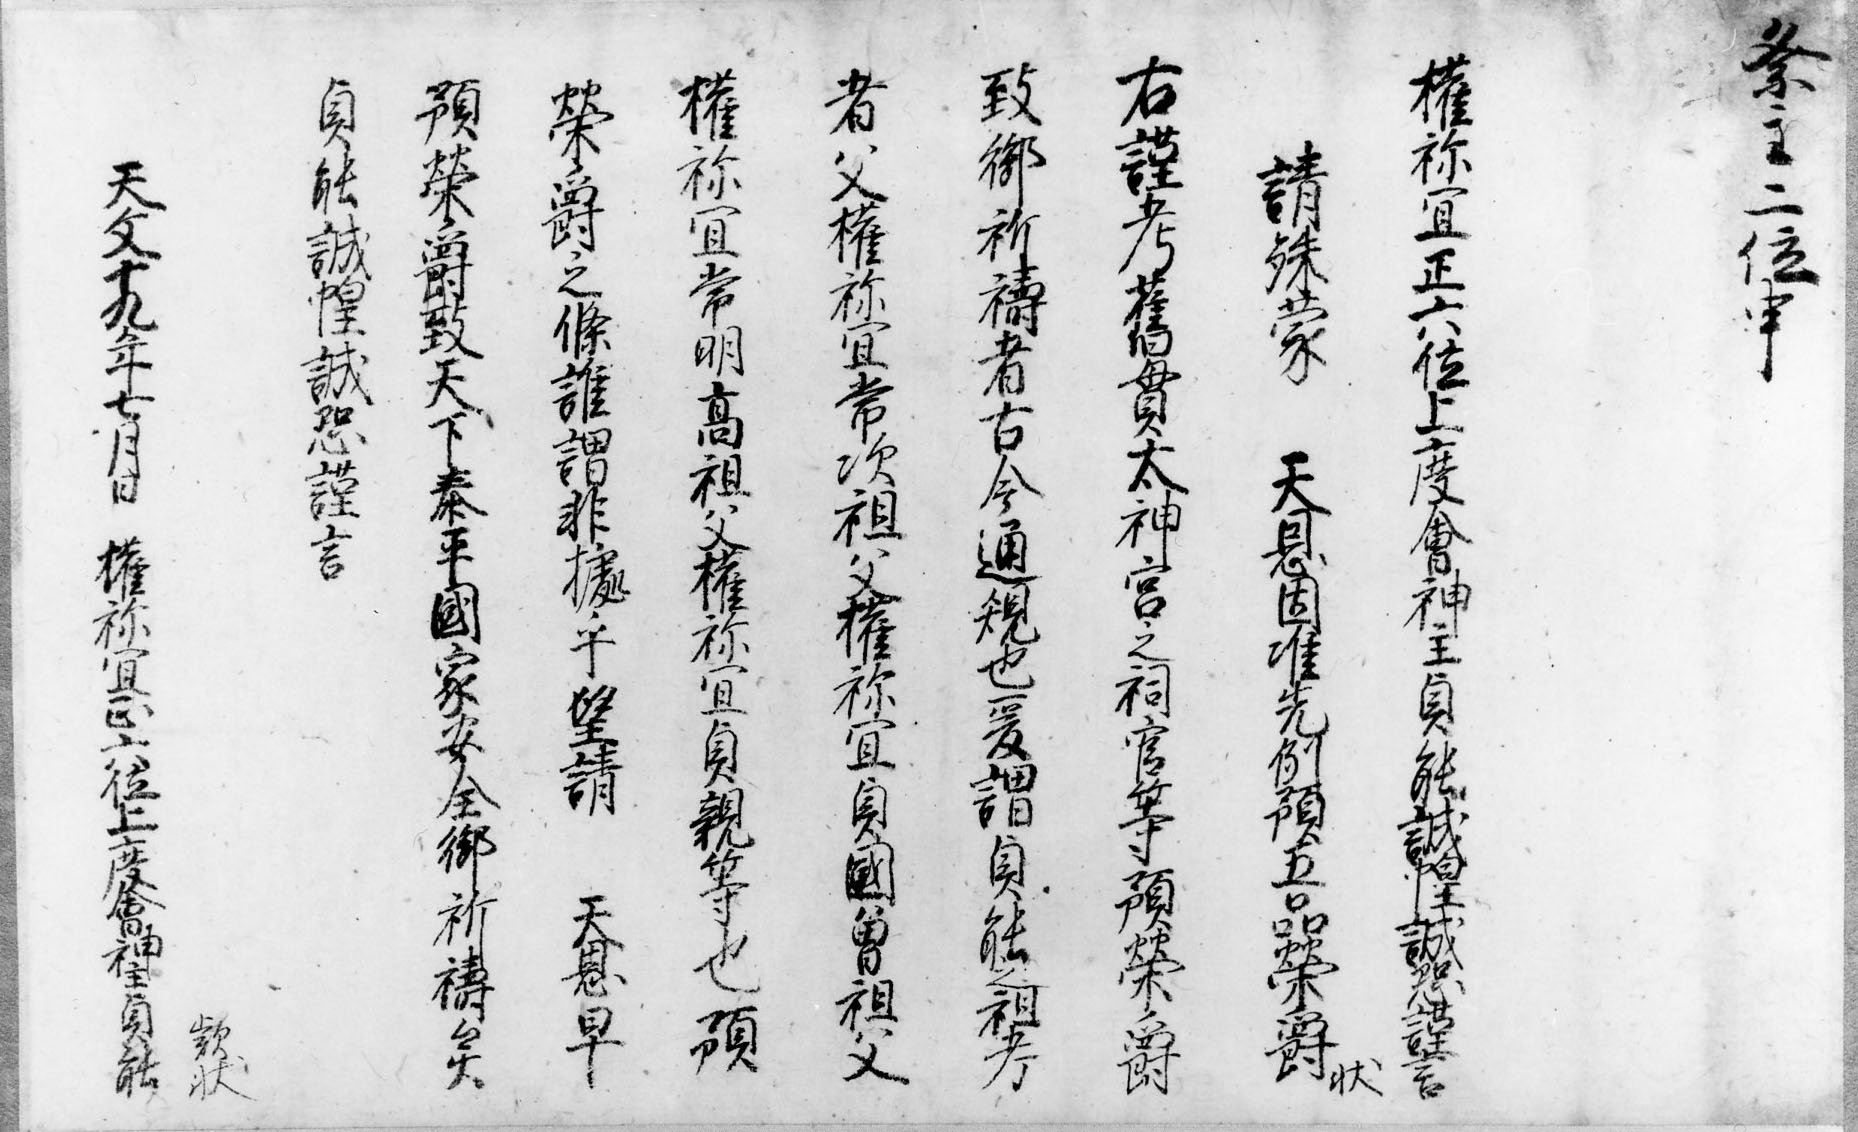 祭主二位申
權祢宜正六位上度會神主貞能誠惶誠恐謹言
請殊蒙　天恩因准先例預五品榮爵
状
右謹考舊貫太神宮之祠官等預榮爵
致御祈禱者古今通規也爰謂貞能之祖考
者父權祢宜常次祖父權祢宜貞國曽祖父
權祢宜常明高祖父權祢宜貞親等也預
榮爵之條誰謂非據乎望請　天恩早
預榮爵致天下泰平國家安全御祈禱矣
貞能誠惶誠恐謹言
款状
天文十九年七月日　權祢宜正六位上度會神主貞能